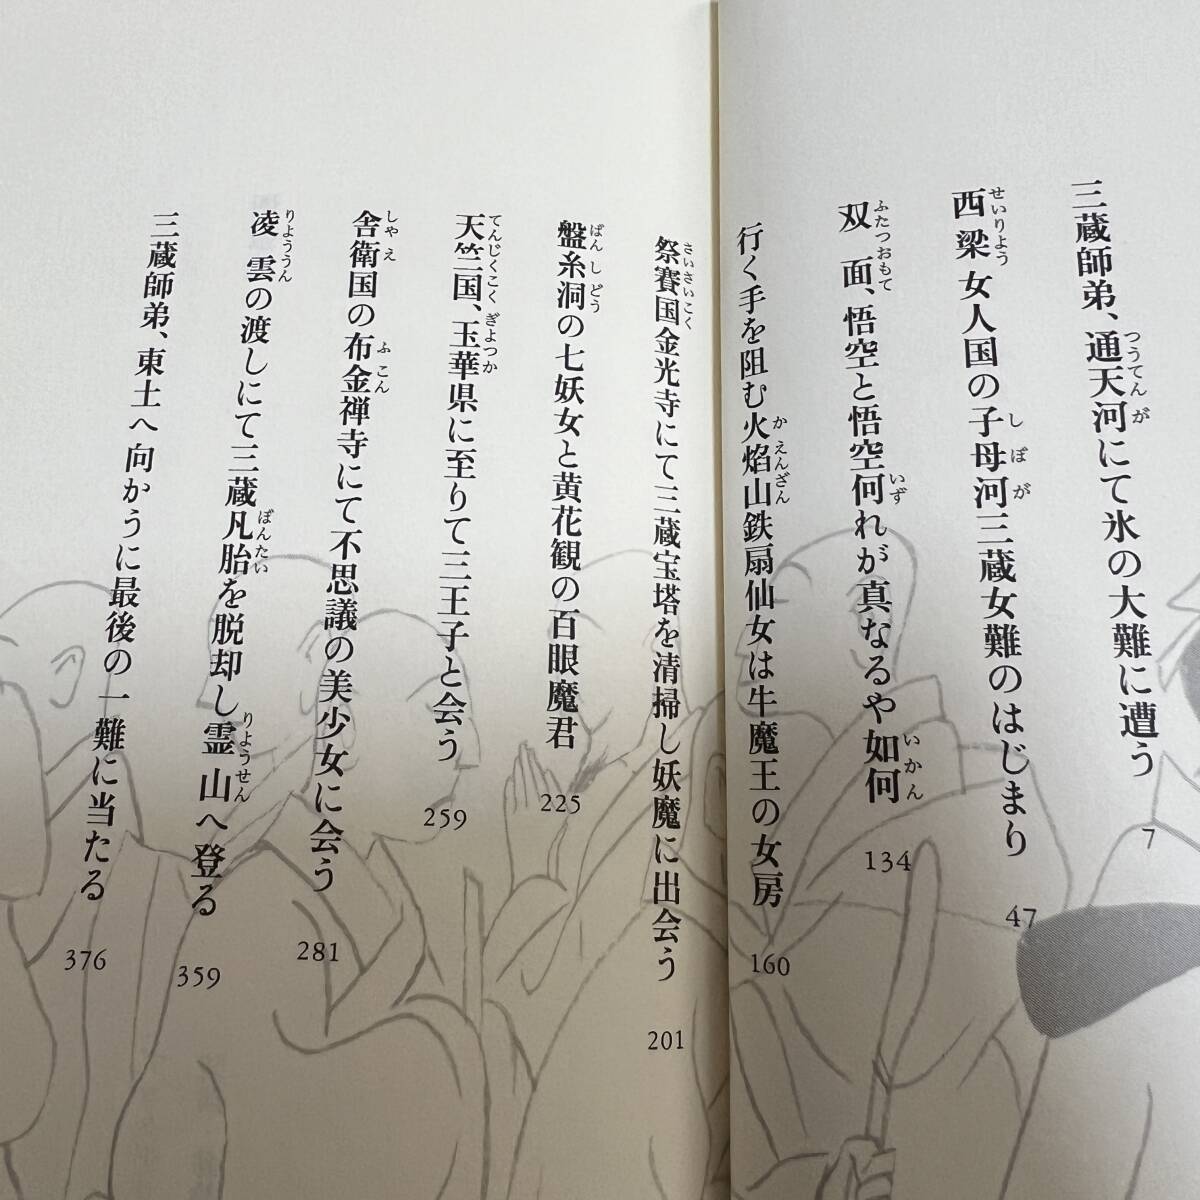 三蔵師弟、通天河にて氷の大難に遭う 7
西梁女人国の子母河三蔵女難のはじまり 47
双面、悟空と悟空何れが真なるや如何 134
行く手を阻む火焔山鉄扇仙女は牛魔王の女房 160
祭賽国金光寺にて三蔵宝塔を清掃し妖魔に出会う 201
盤糸洞の七妖女と黄花観の百眼魔君 225
天竺国、玉華県に至りて三王子と会う 259
舎衛国の布金禅寺にて不思議の美少女に会う 281
凌雲の渡しにて三蔵凡胎を脱却し霊山へ登る 359
三蔵師弟、東土へ向かうに最後の一難に当たる 376